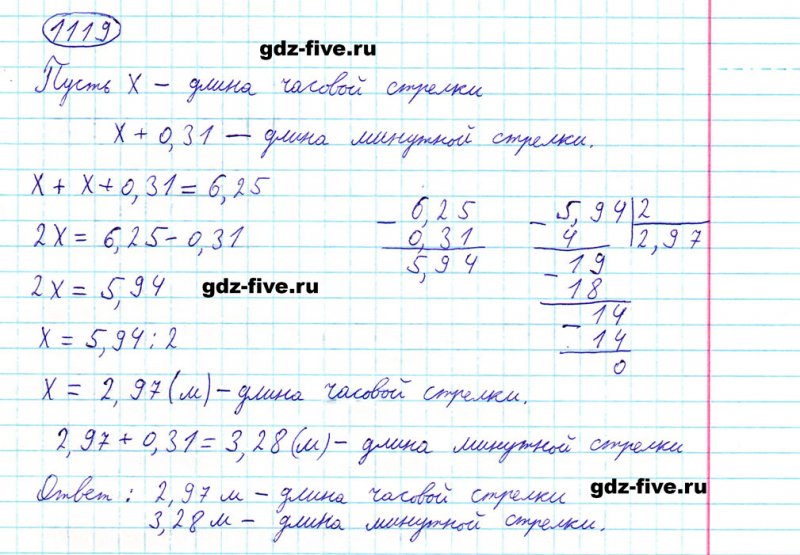 1119
gdz-five.ru
Пусть x – длина часовой стрелки
x + 0,31 — длина минутной стрелки.
x + x + 0,31 = 6,25
2x = 6,25 - 0,31
2x = 5,94
gdz-five.ru
x = 5,94 : 2
- 6,25
0,31
5,94
- 5,94 | 2
4 2,97
- 19
18
- 14
14
0
x = 2,97 (м) – длина часовой стрелки.
2,97 + 0,31 = 3,28 (м) – длина минутной стрелки
Ответ : 2,97 м – длина часовой стрелки
gdz-five.ru
3,28 м – длина минутной стрелки.